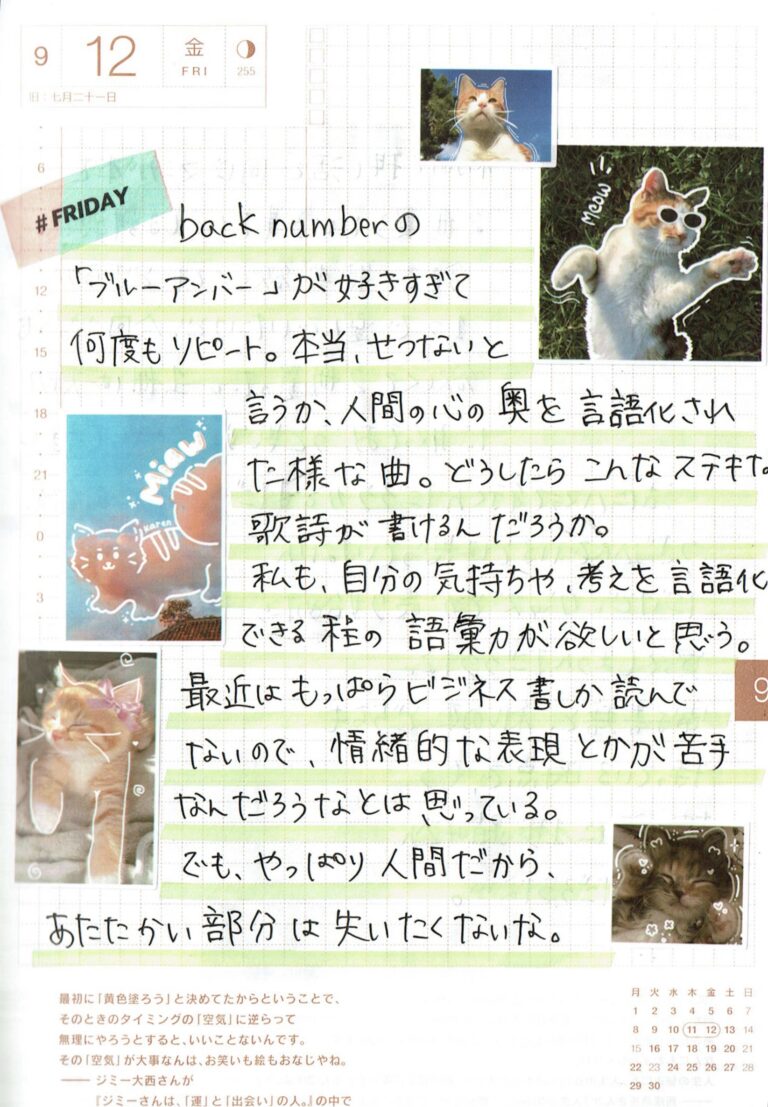 9
12
金
FRI
255
旧：七月二十一日
6
#FRIDAY
back numberの
「ブルーアンバー」が好きすぎて
何度もリピート。本当、せつないと
言うか、人間の心の奥を言語化され
た様な曲。どうしたらこんなステキな
歌詩が書けるんだろうか。
私も、自分の気持ちや、考えを言語化
できる程の語彙力が欲しいと思う。
最近はもっぱらビジネス書しか読んで
ないので、情緒的な表現とかが苦手
なんだろうなとは思っている。
でも、やっぱり人間だから、
あたたかい部分は失いたくないな。
12
15
18
21
0
3
Meow
Miaw
Karen
9
最初に「黄色塗ろう」と決めてたからということで、
そのときのタイミングの「空気」に逆らって
無理にやろうとすると、いいことないんです。
その「空気」が大事なんは、お笑いも絵もおなじやね。
―― ジミー大西さんが
『ジミーさんは、「運」と「出会い」の人。』の中で
月 火 水 木 金 土 日
1 2 3 4 5 6 7
8 9 10 11 12 13 14
15 16 17 18 19 20 21
22 23 24 25 26 27 28
29 30